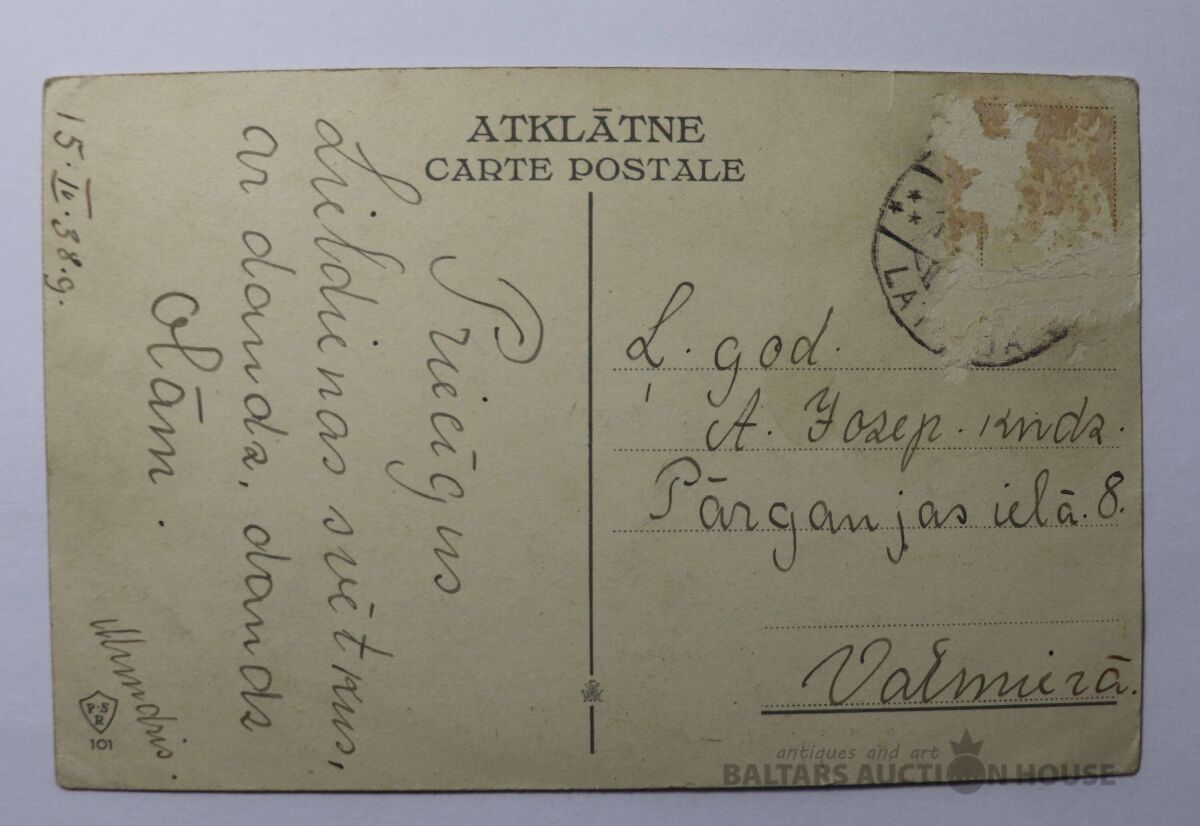 ATKLĀTNE
CARTE POSTALE
15. IV. 38. g.
Priecīgus
Lieldienas svētkus,
ar daudz, daudz
olām.
Mundris.
Ļ. god.
A. Jozep. kndz.
Pārgaujas ielā. 8.
Valmierā.
P.S
R
101
antiques and art
BALTARS AUCTION HOUSE